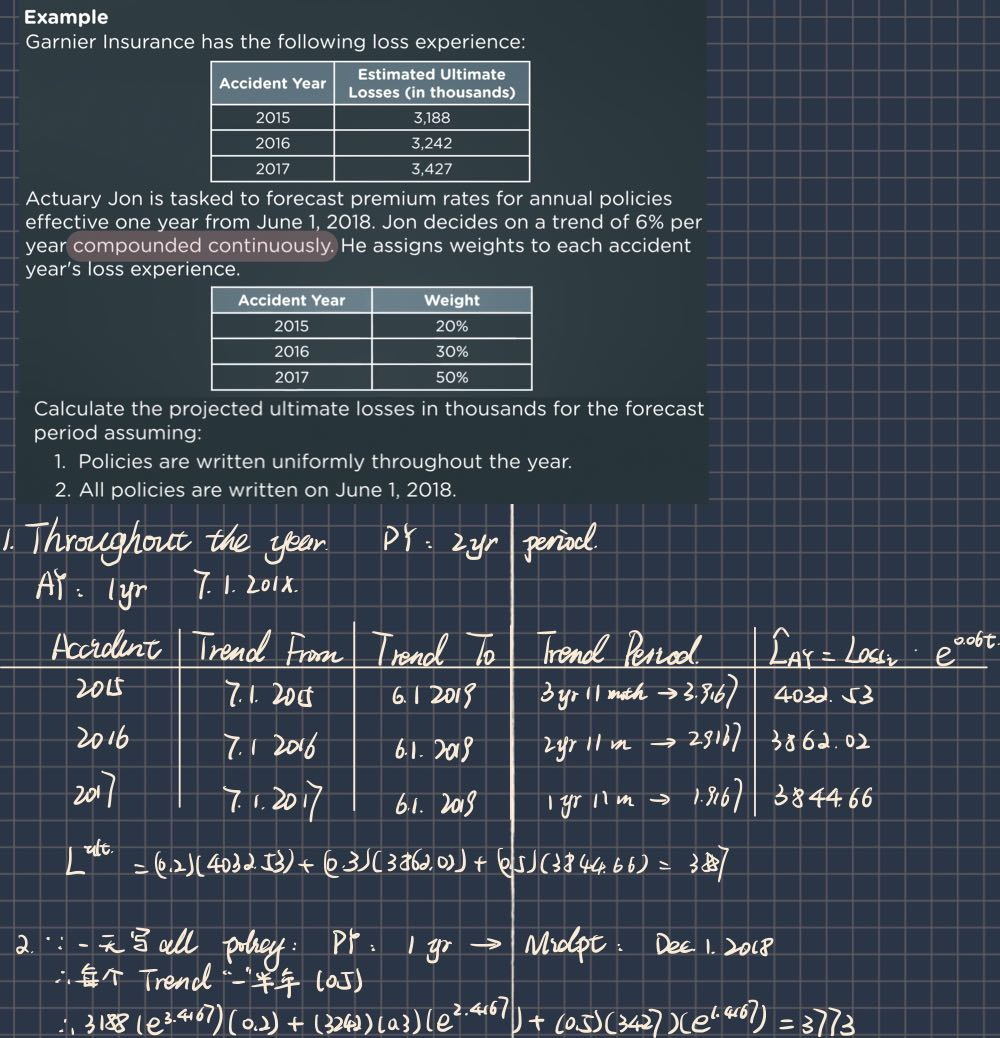 Example
Garnier Insurance has the following loss experience:
Accident Year | Estimated Ultimate Losses (in thousands)
2015 | 3,188
2016 | 3,242
2017 | 3,427
Actuary Jon is tasked to forecast premium rates for annual policies
effective one year from June 1, 2018. Jon decides on a trend of 6% per
year compounded continuously. He assigns weights to each accident
year's loss experience.
Accident Year | Weight
2015 | 20%
2016 | 30%
2017 | 50%
Calculate the projected ultimate losses in thousands for the forecast
period assuming:
1. Policies are written uniformly throughout the year.
2. All policies are written on June 1, 2018.
1. Throughout the year. PY: 2yr period.
AY: 1yr 7.1.201X.
Accident | Trend From | Trend To | Trend Period. | L̂_AY = Loss_i · e^0.06t
2015 | 7.1.2015 | 6.1 2019 | 3yr 11 mth → 3.9167 | 4032.53
2016 | 7.1 2016 | 6.1. 2019 | 2yr 11 m → 2.9167 | 3862.02
2017 | 7.1.2017 | 6.1. 2019 | 1yr 11 m → 1.9167 | 3844.66
L^ult. = (0.2)(4032.53) + (0.3)(3862.02) + (0.5)(3844.66) = 3887
2. ∵ 一天写 all policy: PY: 1 yr → Midpt: Dec 1. 2018
∴ 每个 Trend "-" 半年 (0.5)
∴ 3188(e^3.4167)(0.2) + (3242)(0.3)(e^2.4167) + (0.5)(3427)(e^1.4167) = 3773